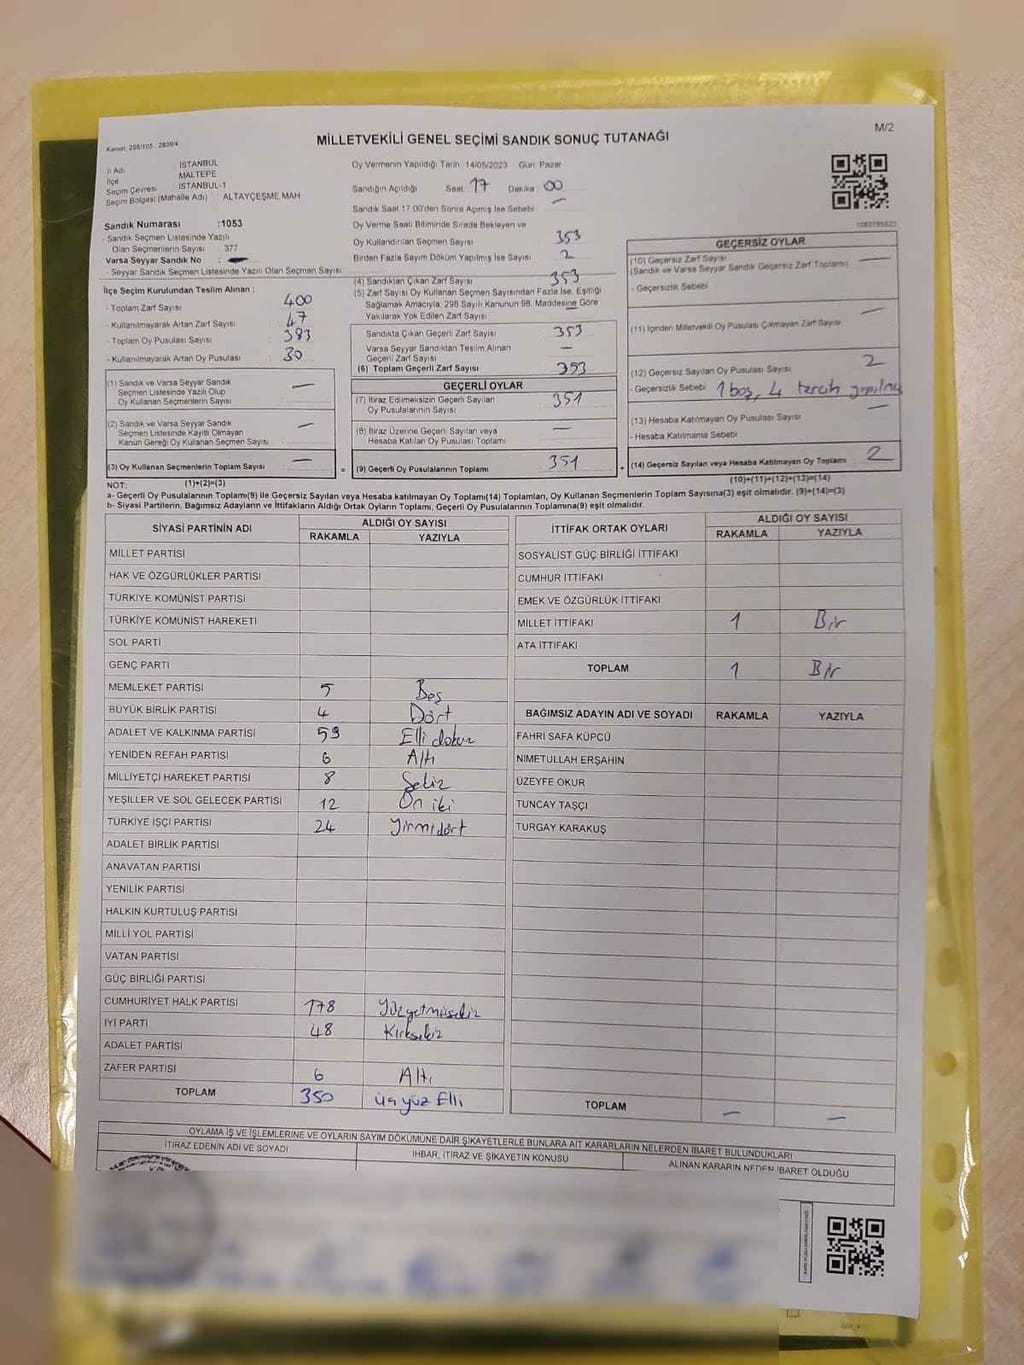 M/2
MİLLETVEKİLİ GENEL SEÇİMİ SANDIK SONUÇ TUTANAĞI
Kanun: 298/105 , 2839/4
İl Adı İSTANBUL
İlçe MALTEPE
Seçim Çevresi İSTANBUL-1
Seçim Bölgesi (Mahalle Adı) : ALTAYÇEŞME MAH
Sandık Numarası :1053
- Sandık Seçmen Listesinde Yazılı
Olan Seçmenlerin Sayısı : 377
Varsa Seyyar Sandık No :
- Seyyar Sandık Seçmen Listesinde Yazılı Olan Seçmen Sayısı
Oy Vermenin Yapıldığı Tarih 14/05/2023 Gün: Pazar
Sandığın Açıldığı Saat 17 Dakika 00
Sandık Saat 17.00'den Sonra Açmış İse Sebebi : —
Oy Verme Saati Bitiminde Sırada Bekleyen ve
Oy Kullandırılan Seçmen Sayısı 353
Birden Fazla Sayım Döküm Yapılmış İse Sayısı 2
İlçe Seçim Kurulundan Teslim Alınan :
- Toplam Zarf Sayısı : 400
- Kullanılmayarak Artan Zarf Sayısı : 47
- Toplam Oy Pusulası Sayısı : 383
- Kullanılmayarak Artan Oy Pusulası : 30
(1) Sandık ve Varsa Seyyar Sandık
Seçmen Listesinde Yazılı Olup
Oy Kullanan Seçmenlerin Sayısı —
(2) Sandık ve Varsa Seyyar Sandık
Seçmen Listesinde Kayıtlı Olmayan
Kanun Gereği Oy Kullanan Seçmen Sayısı —
(3) Oy Kullanan Seçmenlerin Toplam Sayısı —
(1)+(2)=(3)
(4) Sandıktan Çıkan Zarf Sayısı 353
(5) Zarf Sayısı Oy Kullanan Seçmen Sayısından Fazla İse, Eşitliği
Sağlamak Amacıyla, 298 Sayılı Kanunun 98. Maddesine Göre
Yakılarak Yok Edilen Zarf Sayısı —
Sandıkta Çıkan Geçerli Zarf Sayısı 353
Varsa Seyyar Sandıktan Teslim Alınan
Geçerli Zarf Sayısı —
(6) Toplam Geçerli Zarf Sayısı 353
GEÇERLİ OYLAR
(7) İtiraz Edilmeksizin Geçerli Sayılan
Oy Pusulalarının Sayısı 351
(8) İtiraz Üzerine Geçerli Sayılan veya
Hesaba Katılan Oy Pusulası Toplamı —
= (9) Geçerli Oy Pusulalarının Toplamı 351
GEÇERSİZ OYLAR
(10) Geçersiz Zarf Sayısı
(Sandık ve Varsa Seyyar Sandık Geçersiz Zarf Toplamı) —
- Geçersizlik Sebebi
(11) İçinden Milletvekili Oy Pusulası Çıkmayan Zarf Sayısı —
(12) Geçersiz Sayılan Oy Pusulası Sayısı 2
- Geçersizlik Sebebi 1 boş, 4 tercih yapılmış
(13) Hesaba Katılmayan Oy Pusulası Sayısı —
- Hesaba Katılmama Sebebi
+ (14) Geçersiz Sayılan veya Hesaba Katılmayan Oy Toplamı 2
(10)+(11)+(12)+(13)=(14)
NOT:
a- Geçerli Oy Pusulalarının Toplamı(9) ile Geçersiz Sayılan veya Hesaba katılmayan Oy Toplamı(14) Toplamları, Oy Kullanan Seçmenlerin Toplam Sayısına(3) eşit olmalıdır. (9)+(14)=(3)
b- Siyasi Partilerin, Bağımsız Adayların ve İttifakların Aldığı Ortak Oyların Toplamı, Geçerli Oy Pusulalarının Toplamına(9) eşit olmalıdır.
SİYASİ PARTİNİN ADI ALDIĞI OY SAYISI
RAKAMLA YAZIYLA
MİLLET PARTİSİ
HAK VE ÖZGÜRLÜKLER PARTİSİ
TÜRKİYE KOMÜNİST PARTİSİ
TÜRKİYE KOMÜNİST HAREKETİ
SOL PARTİ
GENÇ PARTİ
MEMLEKET PARTİSİ 5 Beş
BÜYÜK BİRLİK PARTİSİ 4 Dört
ADALET VE KALKINMA PARTİSİ 59 Elli dokuz
YENİDEN REFAH PARTİSİ 6 Altı
MİLLİYETÇİ HAREKET PARTİSİ 8 Sekiz
YEŞİLLER VE SOL GELECEK PARTİSİ 12 On iki
TÜRKİYE İŞÇİ PARTİSİ 24 Yirmi dört
ADALET BİRLİK PARTİSİ
ANAVATAN PARTİSİ
YENİLİK PARTİSİ
HALKIN KURTULUŞ PARTİSİ
MİLLİ YOL PARTİSİ
VATAN PARTİSİ
GÜÇ BİRLİĞİ PARTİSİ
CUMHURİYET HALK PARTİSİ 178 Yüzyetmişsekiz
İYİ PARTİ 48 Kırksekiz
ADALET PARTİSİ
ZAFER PARTİSİ 6 Altı
TOPLAM 350 üçyüz Elli
İTTİFAK ORTAK OYLARI ALDIĞI OY SAYISI
RAKAMLA YAZIYLA
SOSYALİST GÜÇ BİRLİĞİ İTTİFAKI
CUMHUR İTTİFAKI
EMEK VE ÖZGÜRLÜK İTTİFAKI
MİLLET İTTİFAKI 1 Bir
ATA İTTİFAKI
TOPLAM 1 Bir
BAĞIMSIZ ADAYIN ADI VE SOYADI RAKAMLA YAZIYLA
FAHRİ SAFA KÜPCÜ
NİMETULLAH ERŞAHİN
ÜZEYFE OKUR
TUNCAY TAŞÇI
TURGAY KARAKUŞ
TOPLAM — —
OYLAMA İŞ VE İŞLEMLERİNE VE OYLARIN SAYIM DÖKÜMÜNE DAİR ŞİKAYETLERLE BUNLARA AİT KARARLARIN NELERDEN İBARET BULUNDUKLARI
İTİRAZ EDENİN ADI VE SOYADI İHBAR, İTİRAZ VE ŞİKAYETİN KONUSU ALINAN KARARIN NEDEN İBARET OLDUĞU